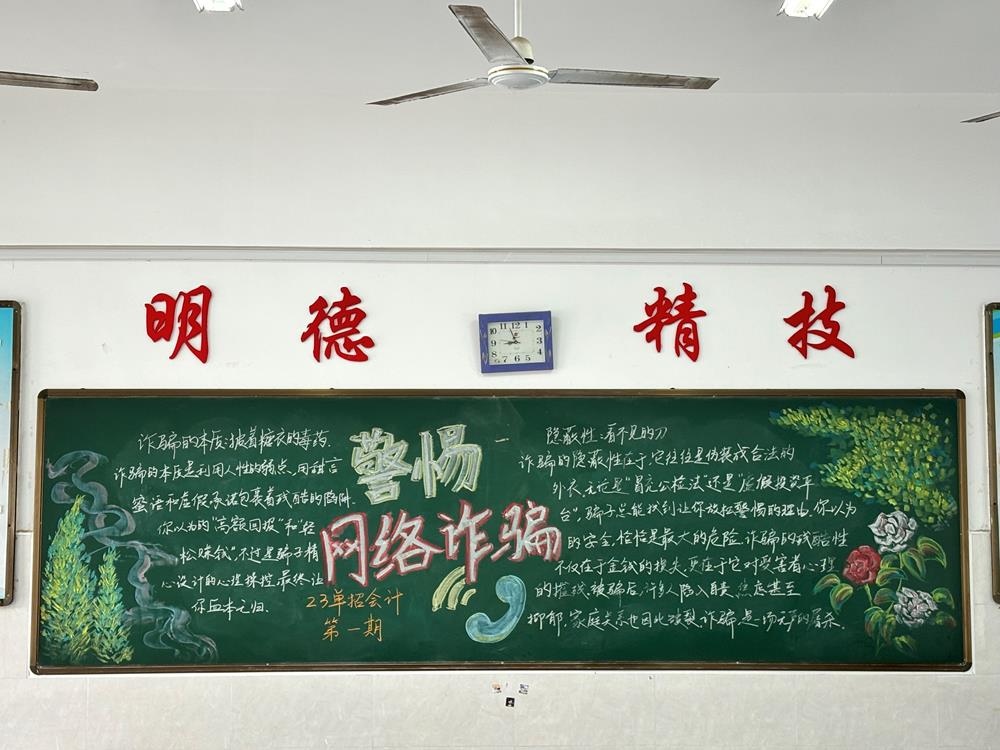 明德精技
诈骗的本质:披着糖衣的毒药.
诈骗的本质是利用人性的弱点.用甜言
蜜语和虚假承诺包裹着残酷的陷阱.
你以为的"高额回报"和"轻
松赚钱"不过是骗子精
心设计的心理操控.最终让
你血本无归.
警惕
网络诈骗
23单招会计
第一期
隐蔽性:看不见的刀
诈骗的隐蔽性在于,它往往是伪装成合法的
外衣.无论是"冒充公检法"还是"虚假投资平
台".骗子总能找到让你放松警惕的理由.你以为
的安全.恰恰是最大的危险.诈骗的残酷性
不仅在于金钱的损失.更在于它对受害者心理
的摧残.被骗后,许多人陷入自责、焦虑甚至
抑郁.家庭关系也因此破裂.诈骗是一场无声的屠杀.
12
11
1
10
2
9
3
8
4
7
6
5